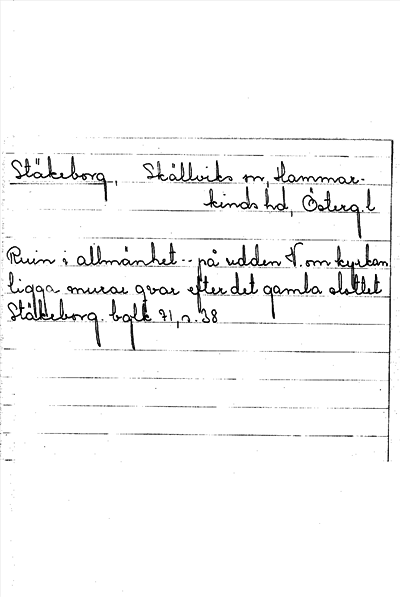 Stäkeborg, Skällviks sn, Hammar-
kinds hd, Österg l
Ruin i allmänhet -- på udden V. om kyrkan
ligga murar qvar efter det gamla slottet
Stäkeborg. bglk 71, n. 38